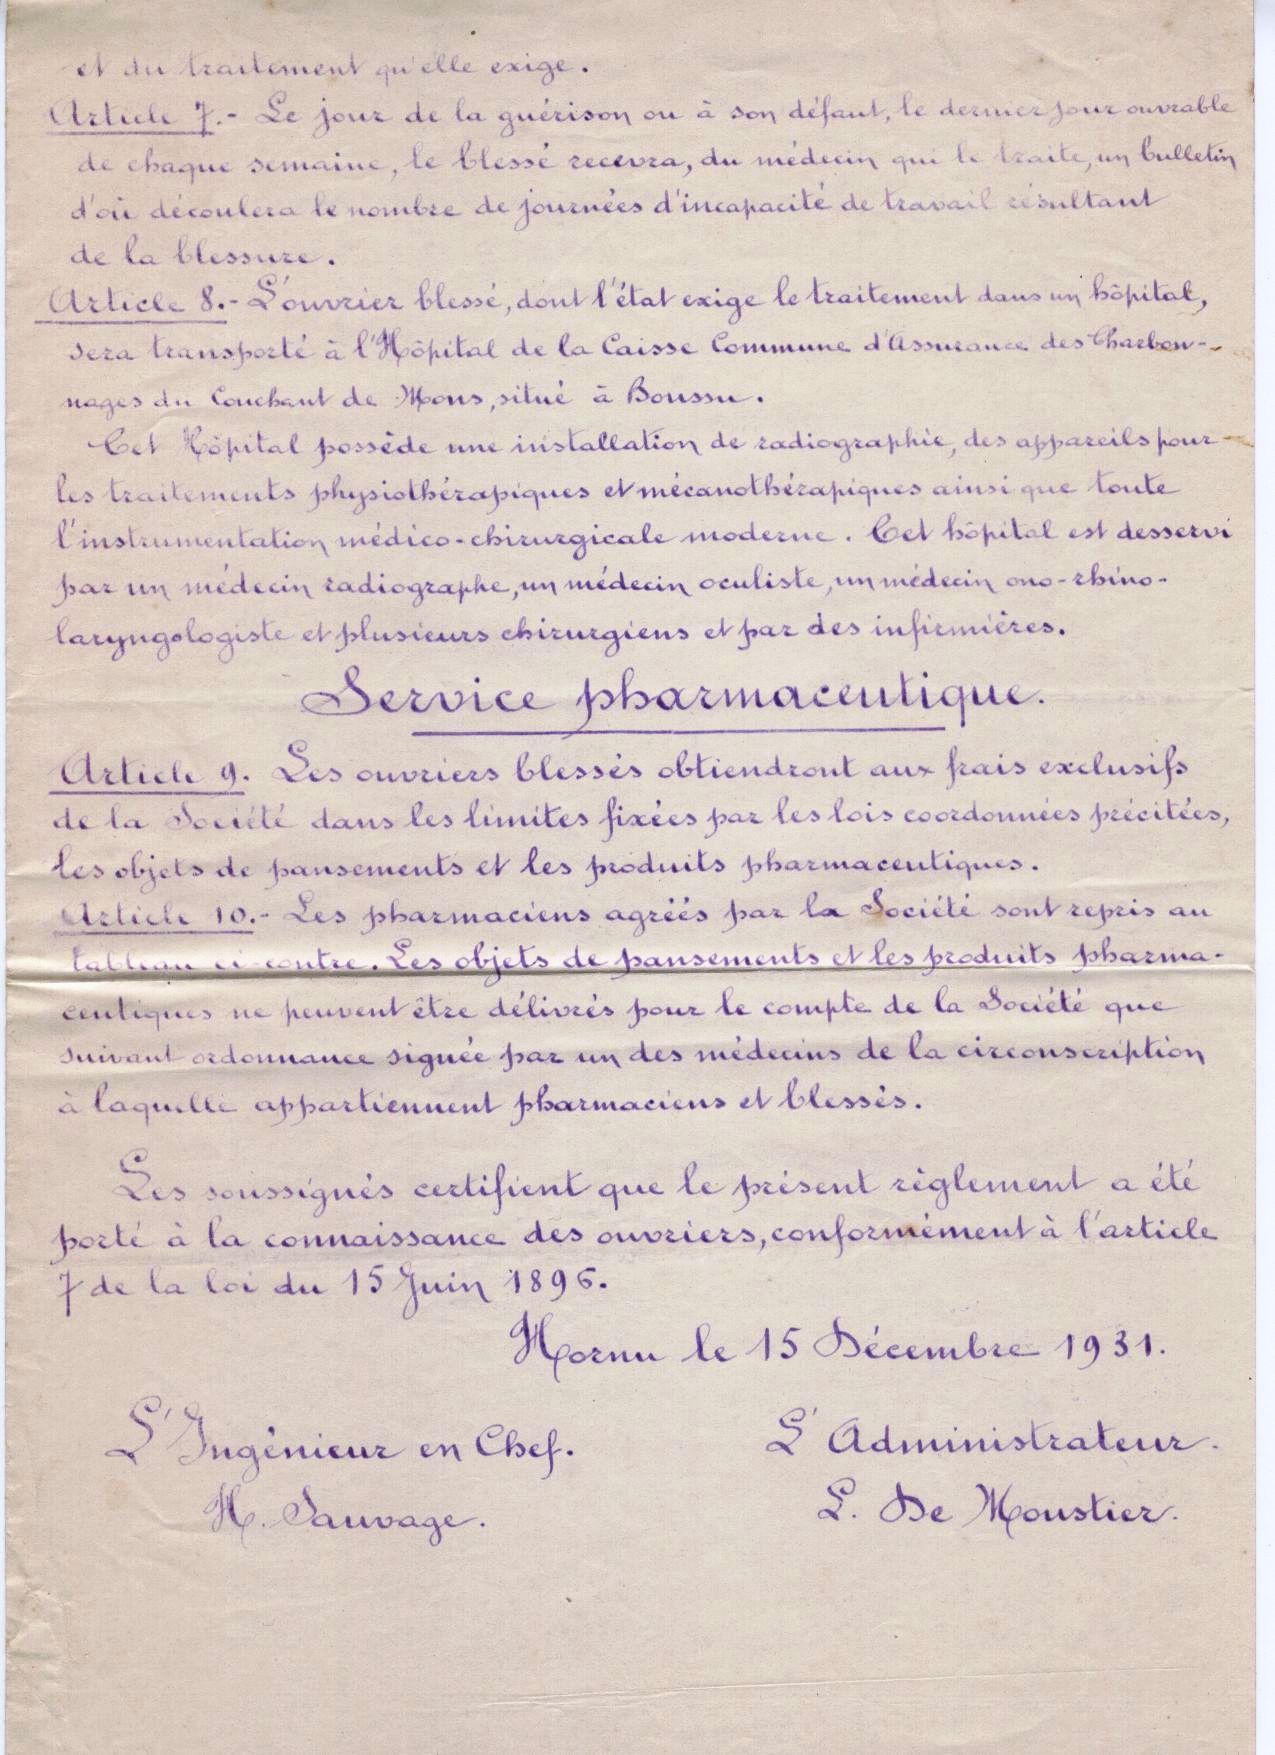 et du traitement qu'elle exige.
Article 7.- Le jour de la guérison ou à son défaut, le dernier jour ouvrable
de chaque semaine, le blessé recevra, du médecin qui le traite, un bulletin
d'où découlera le nombre de journées d'incapacité de travail résultant
de la blessure.
Article 8.- L'ouvrier blessé, dont l'état exige le traitement dans un hôpital,
sera transporté à l'Hôpital de la Caisse Commune d'Assurance des Charbon-
nages du Couchant de Mons, situé à Boussu.
Cet Hôpital possède une installation de radiographie, des appareils pour
les traitements physiothérapiques et mécanothérapiques ainsi que toute
l'instrumentation médico-chirurgicale moderne. Cet hôpital est desservi
par un médecin radiographe, un médecin oculiste, un médecin ono-rhino-
laryngologiste et plusieurs chirurgiens et par des infirmières.
Service pharmaceutique.
Article 9. Les ouvriers blessés obtiendront aux frais exclusifs
de la Société dans les limites fixées par les lois coordonnées précitées,
les objets de pansements et les produits pharmaceutiques.
Article 10.- Les pharmaciens agréés par la Société sont repris au
tableau ci-contre. Les objets de pansements et les produits pharma-
ceutiques ne peuvent être délivrés pour le compte de la Société que
suivant ordonnance signée par un des médecins de la circonscription
à laquelle appartiennent pharmaciens et blessés.
Les soussignés certifient que le présent règlement a été
porté à la connaissance des ouvriers, conformément à l'article
7 de la loi du 15 Juin 1896.
Hornu le 15 Décembre 1931.
L'Ingénieur en Chef.
L'Administrateur.
H. Sauvage.
L. De Moustier.